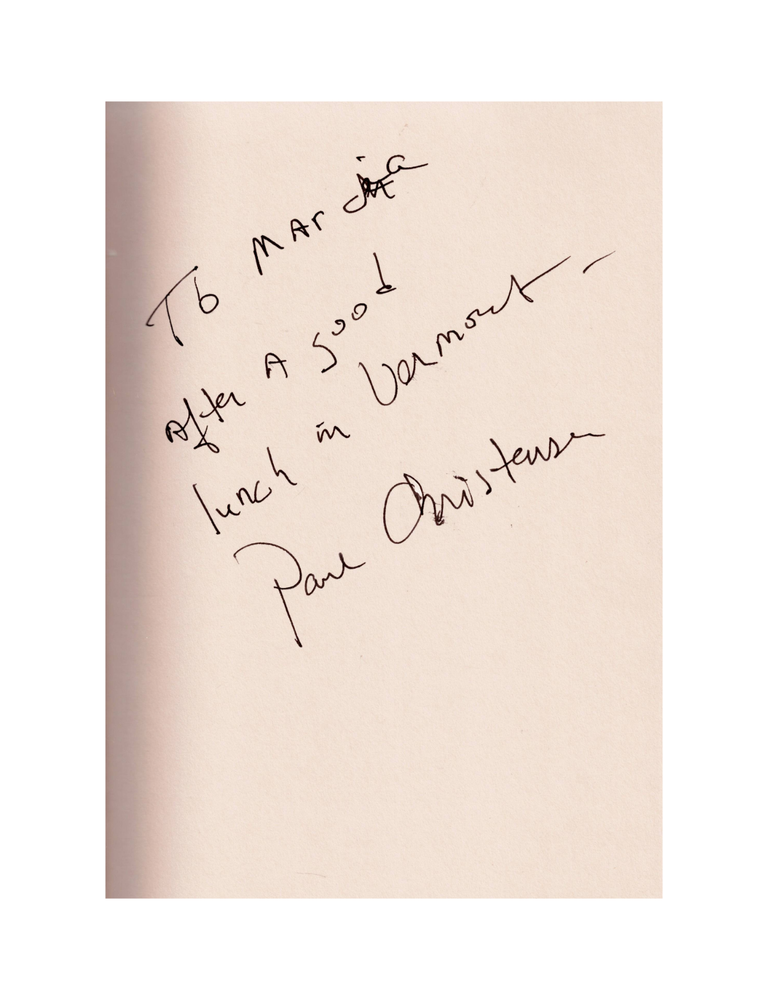 To Marcia
After A good
lunch in Vermont –
Paul Christensen